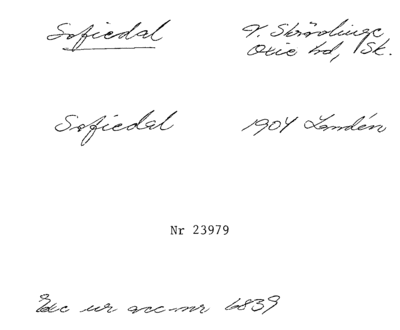 Sofiedal
V. Skrävlinge,
Oxie hd, Sk.
Sofiedal
1904 Landén
Nr 23979
Exc ur acc-nr 6839